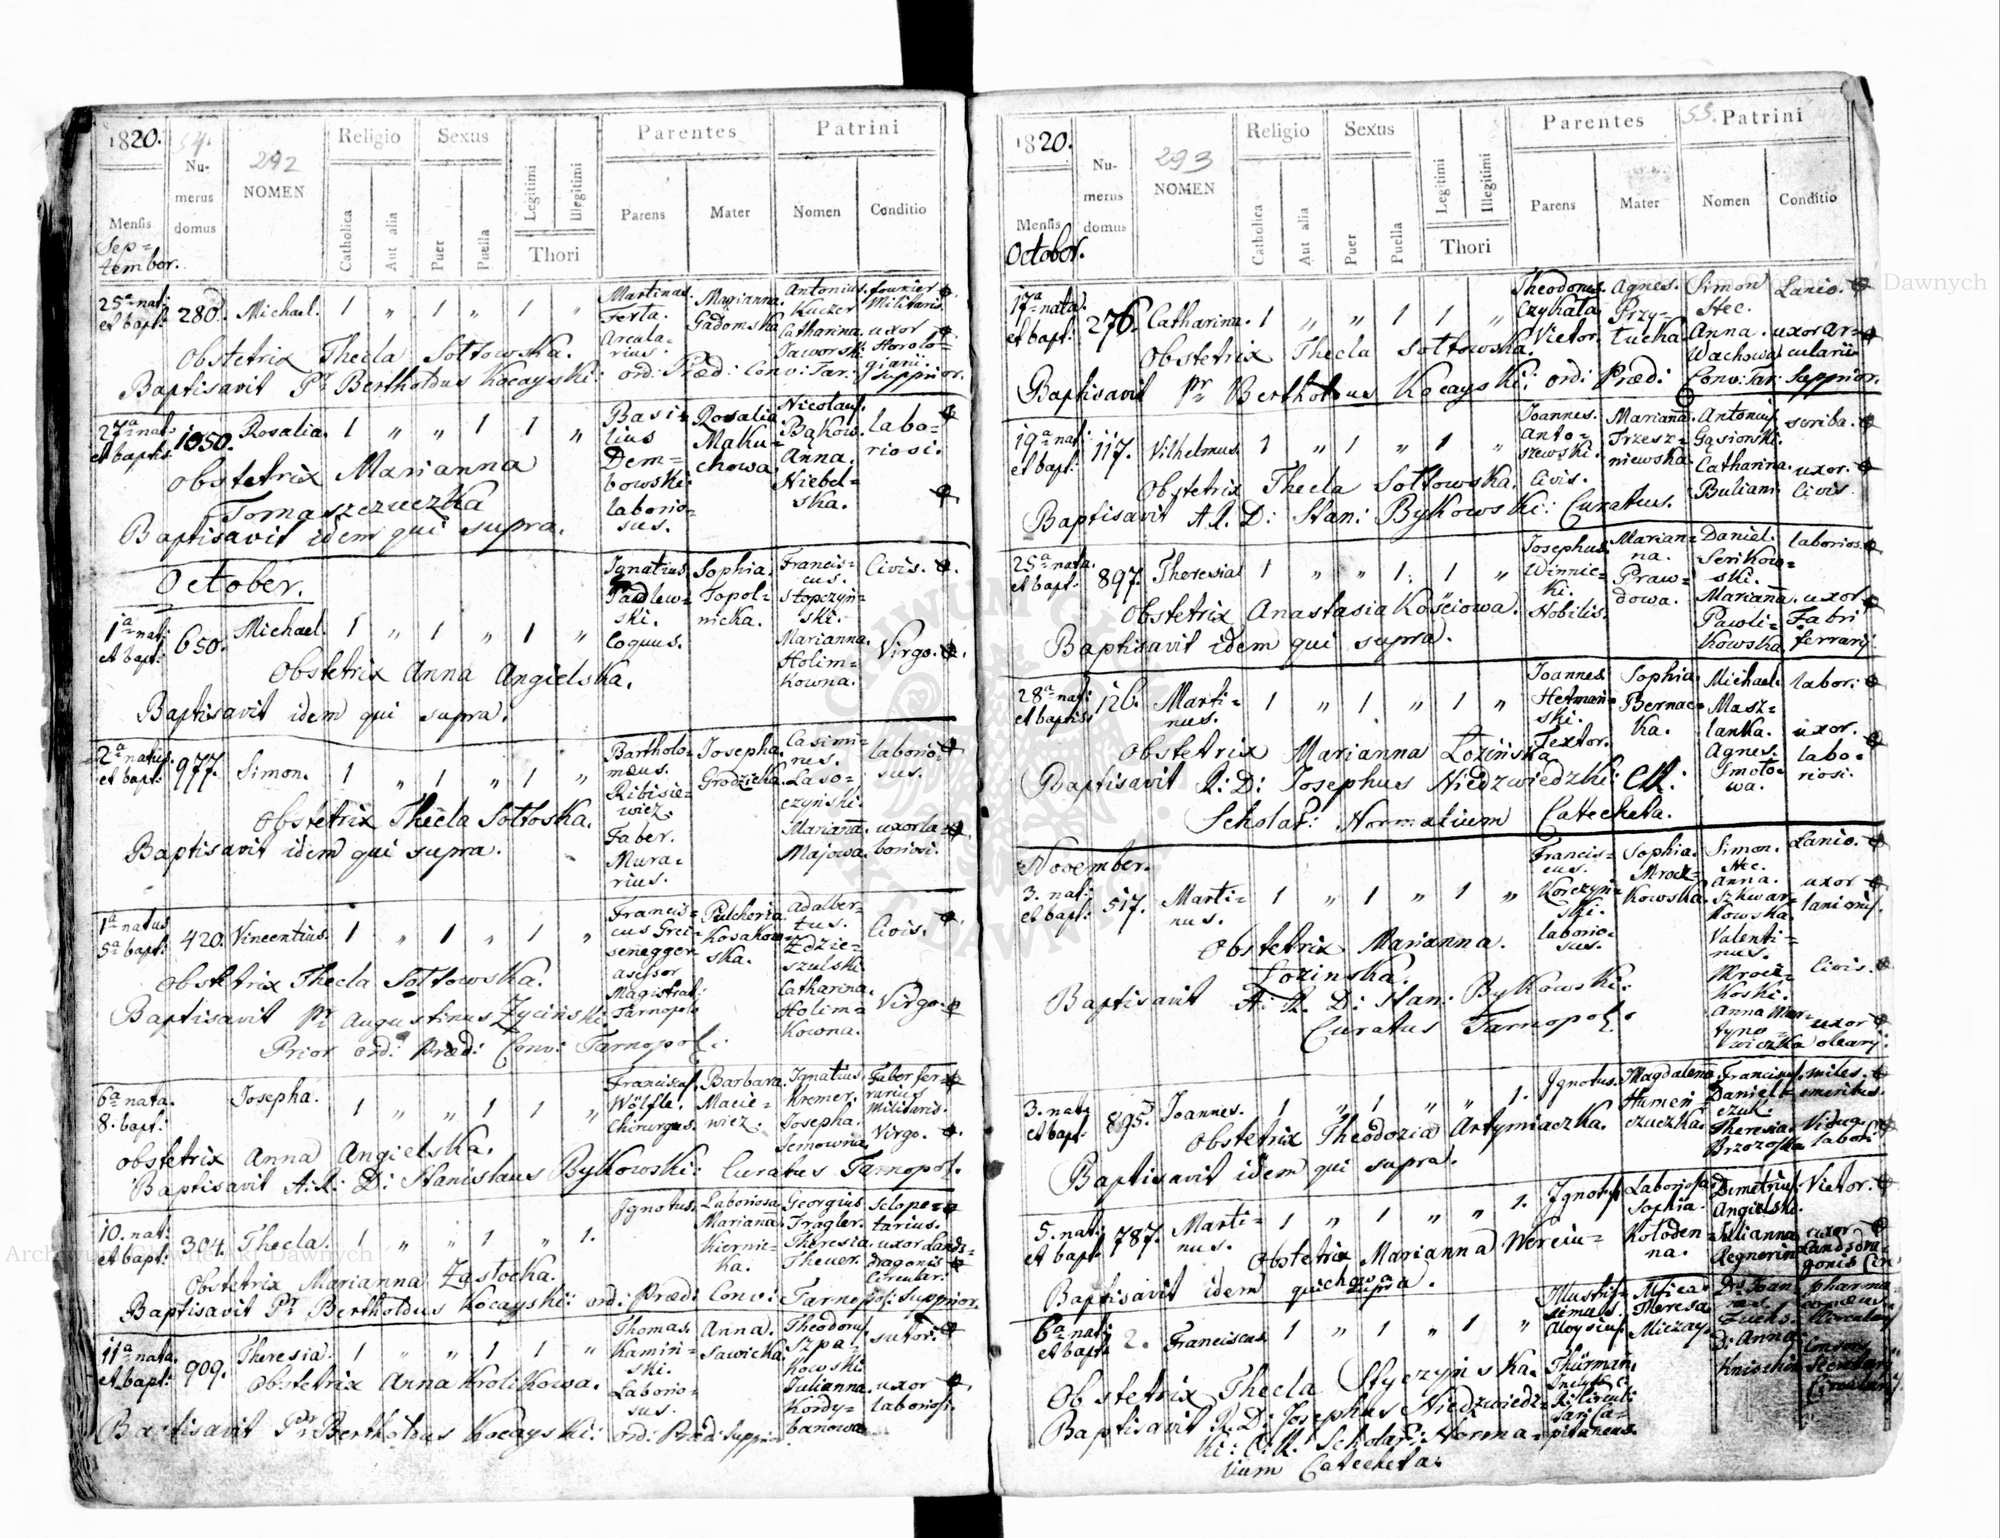 1820.
54.
Numerus domus
292
NOMEN
Religio
Catholica
Aut alia
Sexus
Puer
Puella
Legitimi
Illegitimi
Thori
Parentes
Parens
Mater
Patrini
Nomen
Conditio
Mensis
September.
25a nat: et bapt: 280. Michael. 1 " 1 " 1 " Martinus Ferla. Arcularius. Marianna Gadomska Antonius Kucker fourier Militaris
Catharina Jaworski uxor Horologiarii
Obstetrix Thecla Sołtowska.
Baptisavit Pr Bertholdus Kocayski: ord: Præd: Conv: Tar: Supprior.
27a nat: et baptis: 1050. Rosalia. 1 " " 1 1 " Basilius Dembowski: laboriosus. Rosalia Makuchowa Nicolaus Bąkow. Anna Niebelska. laboriosi.
Obstetrix Marianna
Tomaszczuczka
Baptisavit idem qui supra.
October.
1a nat: et bapt: 650. Michael. 1 " 1 " 1 " Ignatius Padlewski. Coquus. Sophia Topolnicka. Franciscus Stopczyński. Civis.
Marianna Holimkowna. Virgo.
Obstetrix Anna Angielska.
Baptisavit idem qui supra.
2a natus. et bapt: 977. Simon. 1 " 1 " 1 " Bartholomæus Ribisiewicz. Faber Murarius. Josepha Grodzicka. Casimirus Lasoczyński. laboriosus.
Marianna Majowa. uxor laboriosi.
Obstetrix Thecla Sołtoska.
Baptisavit idem qui supra.
1a natus 5a bapt: 420. Vincentius. 1 " 1 " 1 " Franciscus Greisenegger assessor Magistrat: Tarnopol: Pulcheria Kosakowska. Adalbertus Zdzieszulski. Civis.
Catharina Holimkowna. Virgo.
Obstetrix Thecla Sołtowska.
Baptisavit Pr Augustinus Zyciński:
Prior ord: Præd: Conv: Tarnopol:
6a nata. 8. bapt: Josepha. 1 " " 1 1 " Franciscus Wölfle. Chirurgus. Barbara Maciewicz. Ignatius Kremer. Faber ferrarius Militaris.
Josepha Semowna Virgo.
Obstetrix Anna Angielska.
Baptisavit A: R: D: Stanislaus Bykowski: Curatus Tarnopol.
10. nat: et bapt: 304. Thecla. 1 " " 1 " 1. Ignotus. Laboriosa Mariana Kiernicka. Georgius Fragler. sclopetarius.
Theresia Theuer. uxor Landsdragonis Circular:
Obstetrix Marianna Zastocka.
Baptisavit Pr Bertholdus Kocayski: ord: Præd: Conv: Tarnopol: supprior.
11a nata. et bapt: 909. Theresia. 1 " " 1 1 " Thomas Kaminski. Laboriosus. Anna Sawicka. Theodorus Szpakowski. sutor.
Julianna Kordybanowa. uxor laboriosi.
Obstetrix Anna Krolikowa.
Baptisavit Pr Bertholdus Kocayski: ord: Præd: Supprior
1820.
Numerus domus
293
NOMEN
Religio
Catholica
Aut alia
Sexus
Puer
Puella
Legitimi
Illegitimi
Thori
Parentes
Parens
Mater
55.
Patrini
Nomen
Conditio
Mensis
October.
17a nata. et bapt: 276. Catharina. 1 " " 1 1 " Theodorus Czykała Vietor. Agnes Przytucka Simon Stec. Lanio.
Anna Wachowa uxor Arcularii
Obstetrix Thecla Sołtowska.
Baptisavit Pr Bertholdus Kocayski: ord: Præd: Conv: Tar: Supprior.
19a nat: et bapt: 117. Vilhelmus. 1 " 1 " 1 " Joannes Antoszewski. Civis. Marianna Trzeszniewska. Antonius Gąsionski. scriba.
Catharina Buliani uxor. Civis.
Obstetrix Thecla Sołtowska.
Baptisavit A. R. D: Stan: Bykowski: Curatus.
25a nata. et bapt: 897. Theresia 1 " " 1. 1 " Josephus Winnicki. Nobilis. Marianna Prawdowa. Daniel Serikowski. laborios.
Marianna Pawlikowska uxor Fabri ferrarij.
Obstetrix Anastasia Kościowa.
Baptisavit idem qui supra.
28a nat: et baptis: 126. Martinus. 1 " 1 " 1 " Joannes Hetmański. Textor. Sophia Bernacka. Michael Maszlanka. labor:
Agnes Smotowa. uxor. laboriosi.
Obstetrix Marianna Łozińska
Baptisavit R: D: Josephus Niedzwiedzki: CR:
Scholar: Normalium Catecheta.
November.
3. nat: et bapt: 517. Martinus. 1 " 1 " 1 " Franciscus Korczyński. laboriosus. Sophia Mroczkowska. Simon Stec. Lanio.
Anna Szkwarkowska. uxor lanionis.
Valentinus Mroczkoski. Civis.
Anna Martynowiczka uxor olearij.
Obstetrix Marianna
Łozinska.
Baptisavit A: R: D: Stan: Bykowski:
Curatus Tarnopol:
3. nat: et bapt: 895. Joannes. 1 " 1 " " 1. Ignotus. Magdalena Humeńczuczka. Franciscus Danielczuk. miles emeritus.
Theresia Brzozoska Vidua labori
Obstetrix Theodozia Artymiaczka.
Baptisavit idem qui supra.
5. nat: et bapt: 787. Martinus. 1 " 1 " " 1. Ignotus Laboriosa Sophia Kołodenna. Demetrius Angielski. Vietor.
Julianna Regnerin uxor Landsdragonis Cir:
Obstetrix Marianna Wereiuchowa
Baptisavit idem qui supra.
6a nat: et bapt: 2. Franciscus. 1 " 1 " 1 " Illustrissimus Aloysius Thürman. Theresa Miczay. Fuchs.
D: Anna
Obstetrix Thecla Styczyńska.
Baptisavit R: D: Josephus Niedzwiedzki: C: R. Scholar: Normalium Catecheta.